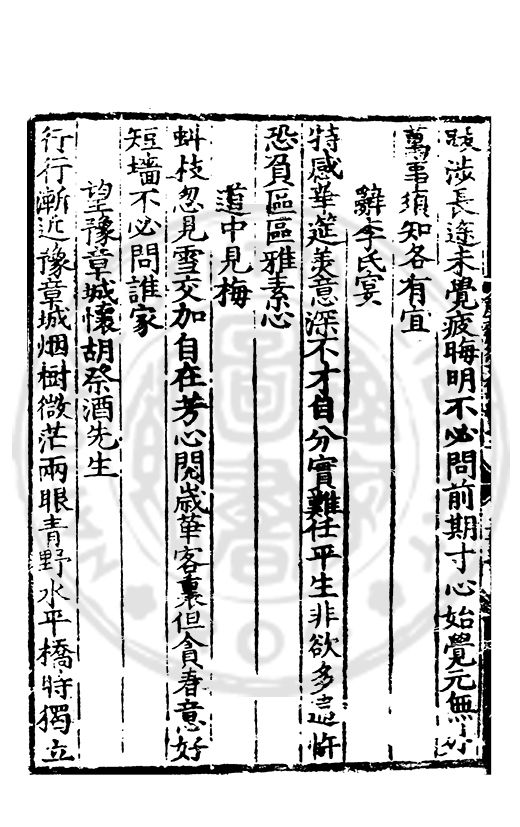 跋涉長途未覺疲晦明不必問前期寸心始覺元無
萬事須知各有宜
辭李氏宴
特感華筵美意深不才自分實難任平生非欲多
恐負區區雅素心
道中見梅
蚪枝忽見雪交加自在芳心閱歲華客裏但貪春意好
短墻不必問誰家
望豫章城懷胡祭酒先生
行行漸近豫章城烟樹微茫兩眼青野水平橋時獨立